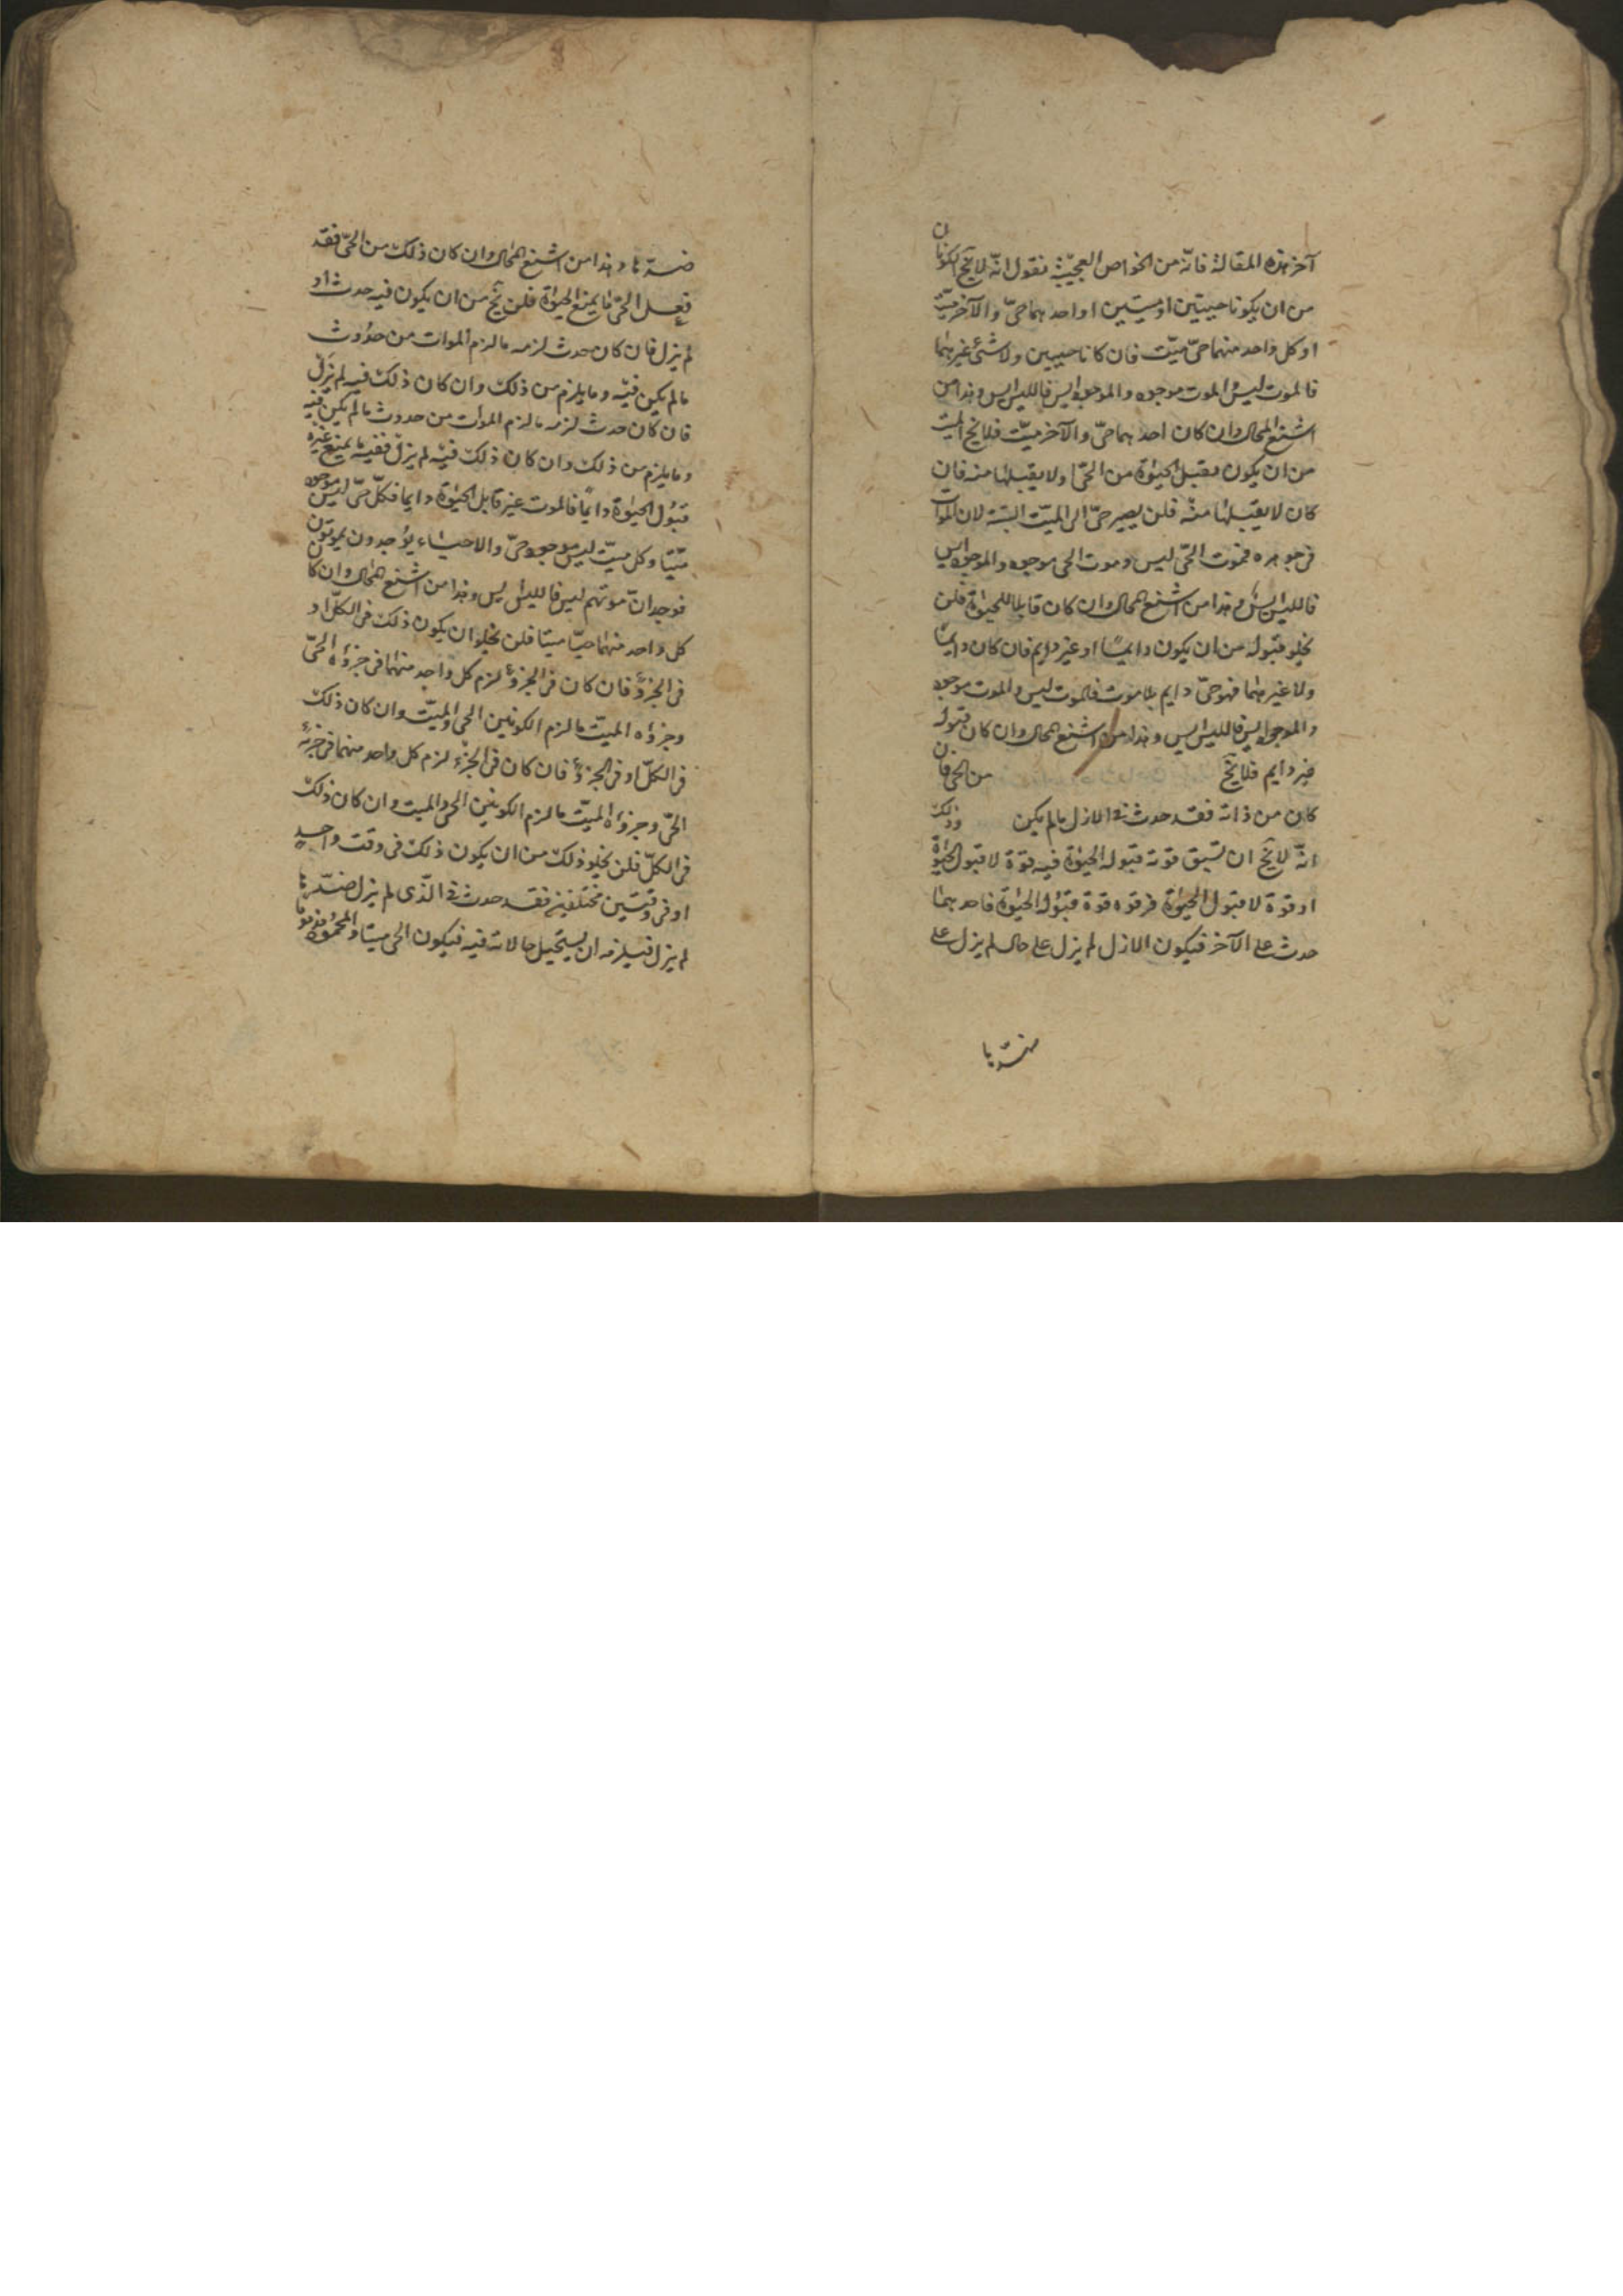 آخر هذه المقالة فانّه من الخواص العجيبة فنقول انّه لا يخ الكونان
من ان يكونا حيّيين او ميّتين او احدهما حىّ والآخر ميّت
او كل واحد منهما حىّ ميّت فان كانا حيّيين ولا شئ غيرهما
فالموت ليس والموت موجود والموجود ايس فالليس ايس وهذا من
اشنع المحال وان كان احدهما حىّ والآخر ميّت فلا يخ الميت
من ان يكون يقبل الحيوة من الحىّ او لا يقبلها منه فان
كان لا يقبلها منه فلن يصير حىّ الى الميّت البتة لان الموات
فى جوهره فموت الحىّ ليس وموت الحى موجود والموجود ايس
فالليس ايس وهذا من اشنع المحال وان كان قابلا للحيوة فلن
يخلو قبوله من ان يكون دايما او غير دايم فان كان دايما
ولا غيرهما فهو حىّ دايم بلا موت فالموت ليس والموت موجود
والموجود ايس فالليس ايس وهذا من اشنع المحال وان كان قبوله
غير دايم فلا يخ من الحى فان
كان من ذاته فقد حدث فى الازل ما لم يكن وذلك
انّه لا يخ ان تسبق قوته قبوله الحيوة فيه قوة لا قبول الحيوة
او قوة لا قبول الحيوة فى قوه قوة قبول الحيوة فاحدهما
حدث على الآخر فيكون الازل لم يزل على حال لم يزل على
ضدّها
ضدّها وهذا من اشنع المحال وان كان ذلك من الحىّ فقد
فعل الحىّ ما يمنع الحيوة فلن يخ من ان يكون فيه حدث او
لم يزل فان كان حدث لزمه ما لزم الموات من حدوث
ما لم يكن فيه وما يلزم من ذلك وان كان ذلك فيه لم يزل
فان كان حدث لزمه ما لزم الموات من حدوث ما لم يكن فيه
وما يلزم من ذلك وان كان ذلك فيه لم يزل ففيه ما يمنع غيره
قبول الحيوة دايما فالموت غير قابل الحيوة دايما فكلّ حىّ ليس موجود
ميّتا وكل ميّت ليس موجود حىّ والاحياء يوجدون يموتون
فوجد انّ موتهم ليس فالليس ايس وهذا من اشنع المحال وان كان
كل واحد منهما حيّا ميتا فلن يخلو ان يكون ذلك فى الكلّ او
فى الجزؤ فان كان فى الجزؤ لزم كل واحد منهما فى جزؤه الحىّ
وجزؤه الميّت ما لزم الكونين الحى والميّت وان كان ذلك
فى الكلّ او فى الجزؤ فان كان فى الجزء لزم كل واحد منهما فى جزئه
الحىّ وجزؤه الميّت ما لزم الكونين الحى والميت وان كان ذلك
فى الكلّ فلن يخلو ذلك من ان يكون ذلك فى وقت واحد
او فى وقتين مختلفين فقد حدث فى الّذى لم يزل ضدّ ما
لم يزل فيلزمه ان يستحيل حالاته فيه فيكون الحى ميتا والمحمود